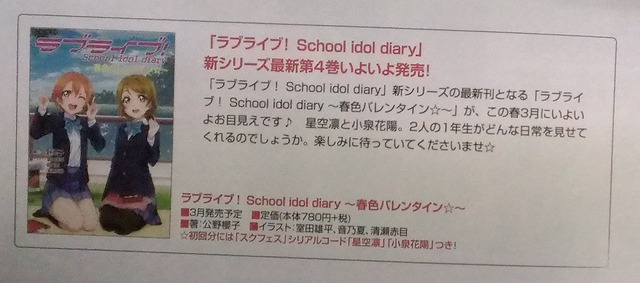 ラブライブ!
School idol diary
「ラブライブ! School idol diary」
新シリーズ最新第4巻いよいよ発売!
「ラブライブ! School idol diary」新シリーズの最新刊となる「ラブライ
ブ! School idol diary ～春色バレンタイン☆～」が、この春3月にいよい
よお目見えです♪　星空凛と小泉花陽。2人の1年生がどんな日常を見せて
くれるのでしょうか。楽しみに待っていてくださいませ☆
ラブライブ! School idol diary ～春色バレンタイン☆～
■3月発売予定　■定価(本体780円+税)
■著：公野櫻子　■イラスト：室田雄平、音乃夏、清瀬赤目
☆初回分には「スクフェス」シリアルコード「星空凛」「小泉花陽」つき!